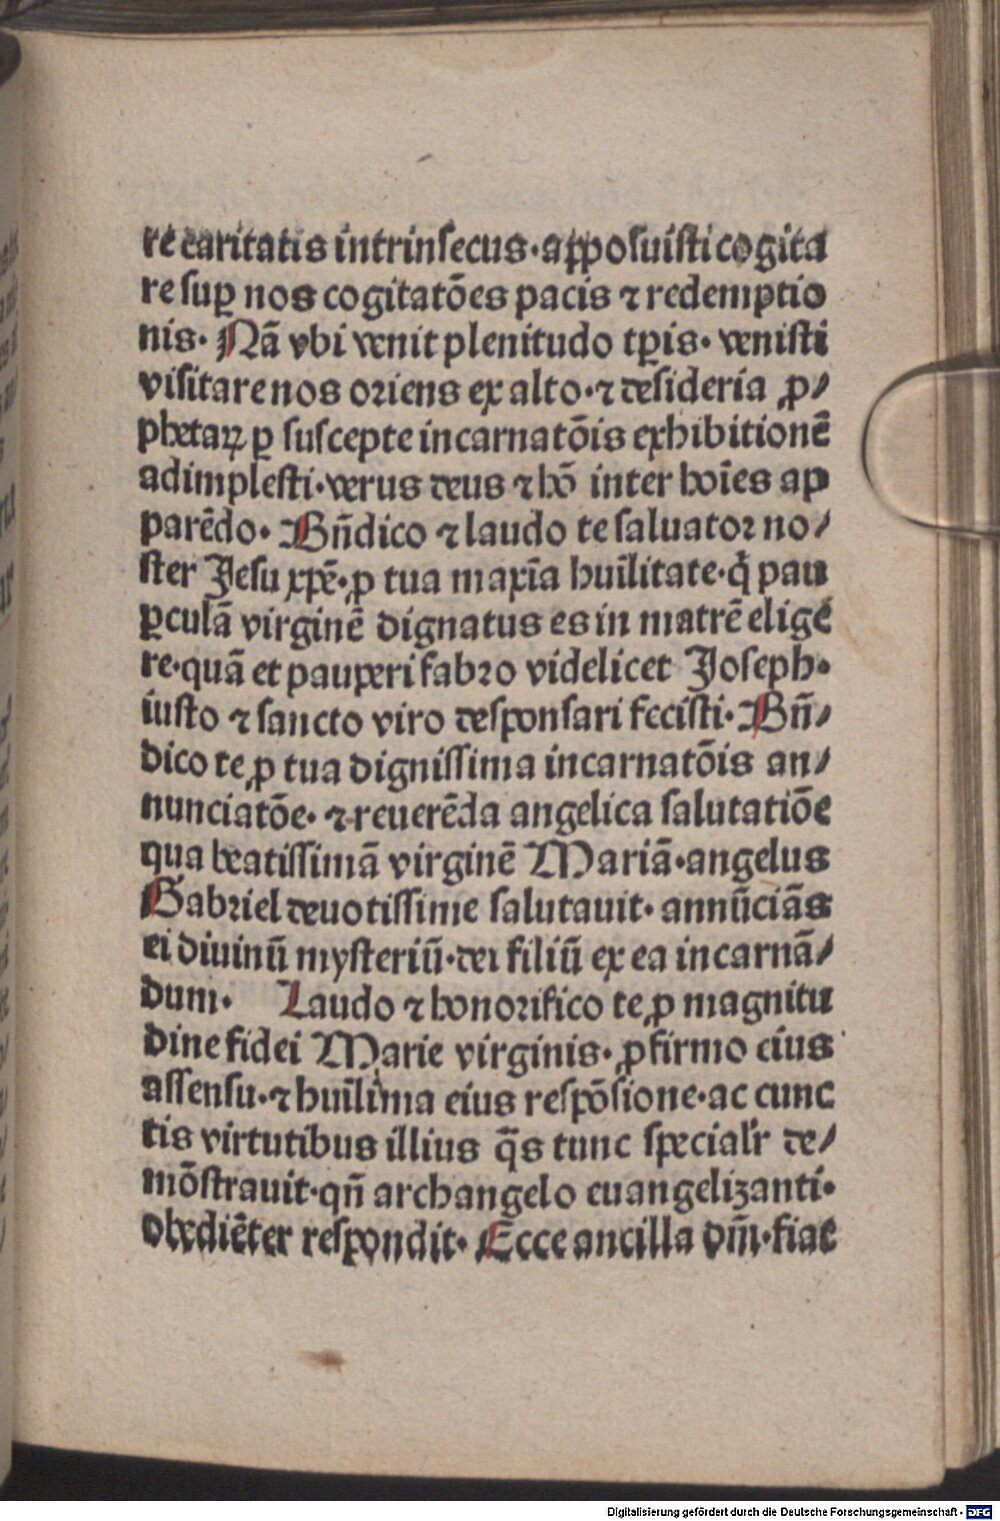 re caritatis intrinsecus·apposuisti cogita
re suꝑ nos cogitatōes pacis ⁊ redemptio
nis· Nā vbi venit plenitudo tꝑis· venisti
visitare nos oriens ex alto·⁊ desideria ꝓ/
phetaꝝ ꝑ suscepte incarnatōis exhibitionē
adimplesti·verus deus ⁊ hō inter hoīes ap
parēdo· Bn̄dico ⁊ laudo te saluator no/
ster Jesu xp̄e·ꝓ tua maxīa huīlitate·q̇ pau
ꝑculā virginē dignatus es in matrē elige
re·quā et pauperi fabro videlicet Joseph·
iusto ⁊ sancto viro desponsari fecisti· Bn̄/
dico te ꝓ tua dignissima incarnatōis an/
nunciatōe· ⁊ reuerēda angelica salutatiōe
qua beatissimā virginē Mariā·angelus
Gabriel deuotissime salutauit· annūciās
ei diuinū mysteriū·dei filiū ex ea incarnā/
dum· Laudo ⁊ honorifico te ꝓ magnitu
dine fidei Marie virginis· ꝓ firmo eius
assensu·⁊ huīlima eius respōsione·ac cunc
tis virtutibus illius q̄s tunc specialr̄ de/
mōstrauit·qn̄ archangelo euangelizanti·
obediēter respondit· Ecce ancilla dn̄i·fiat
Digitalisierung gefördert durch die Deutsche Forschungsgemeinschaft - DFG